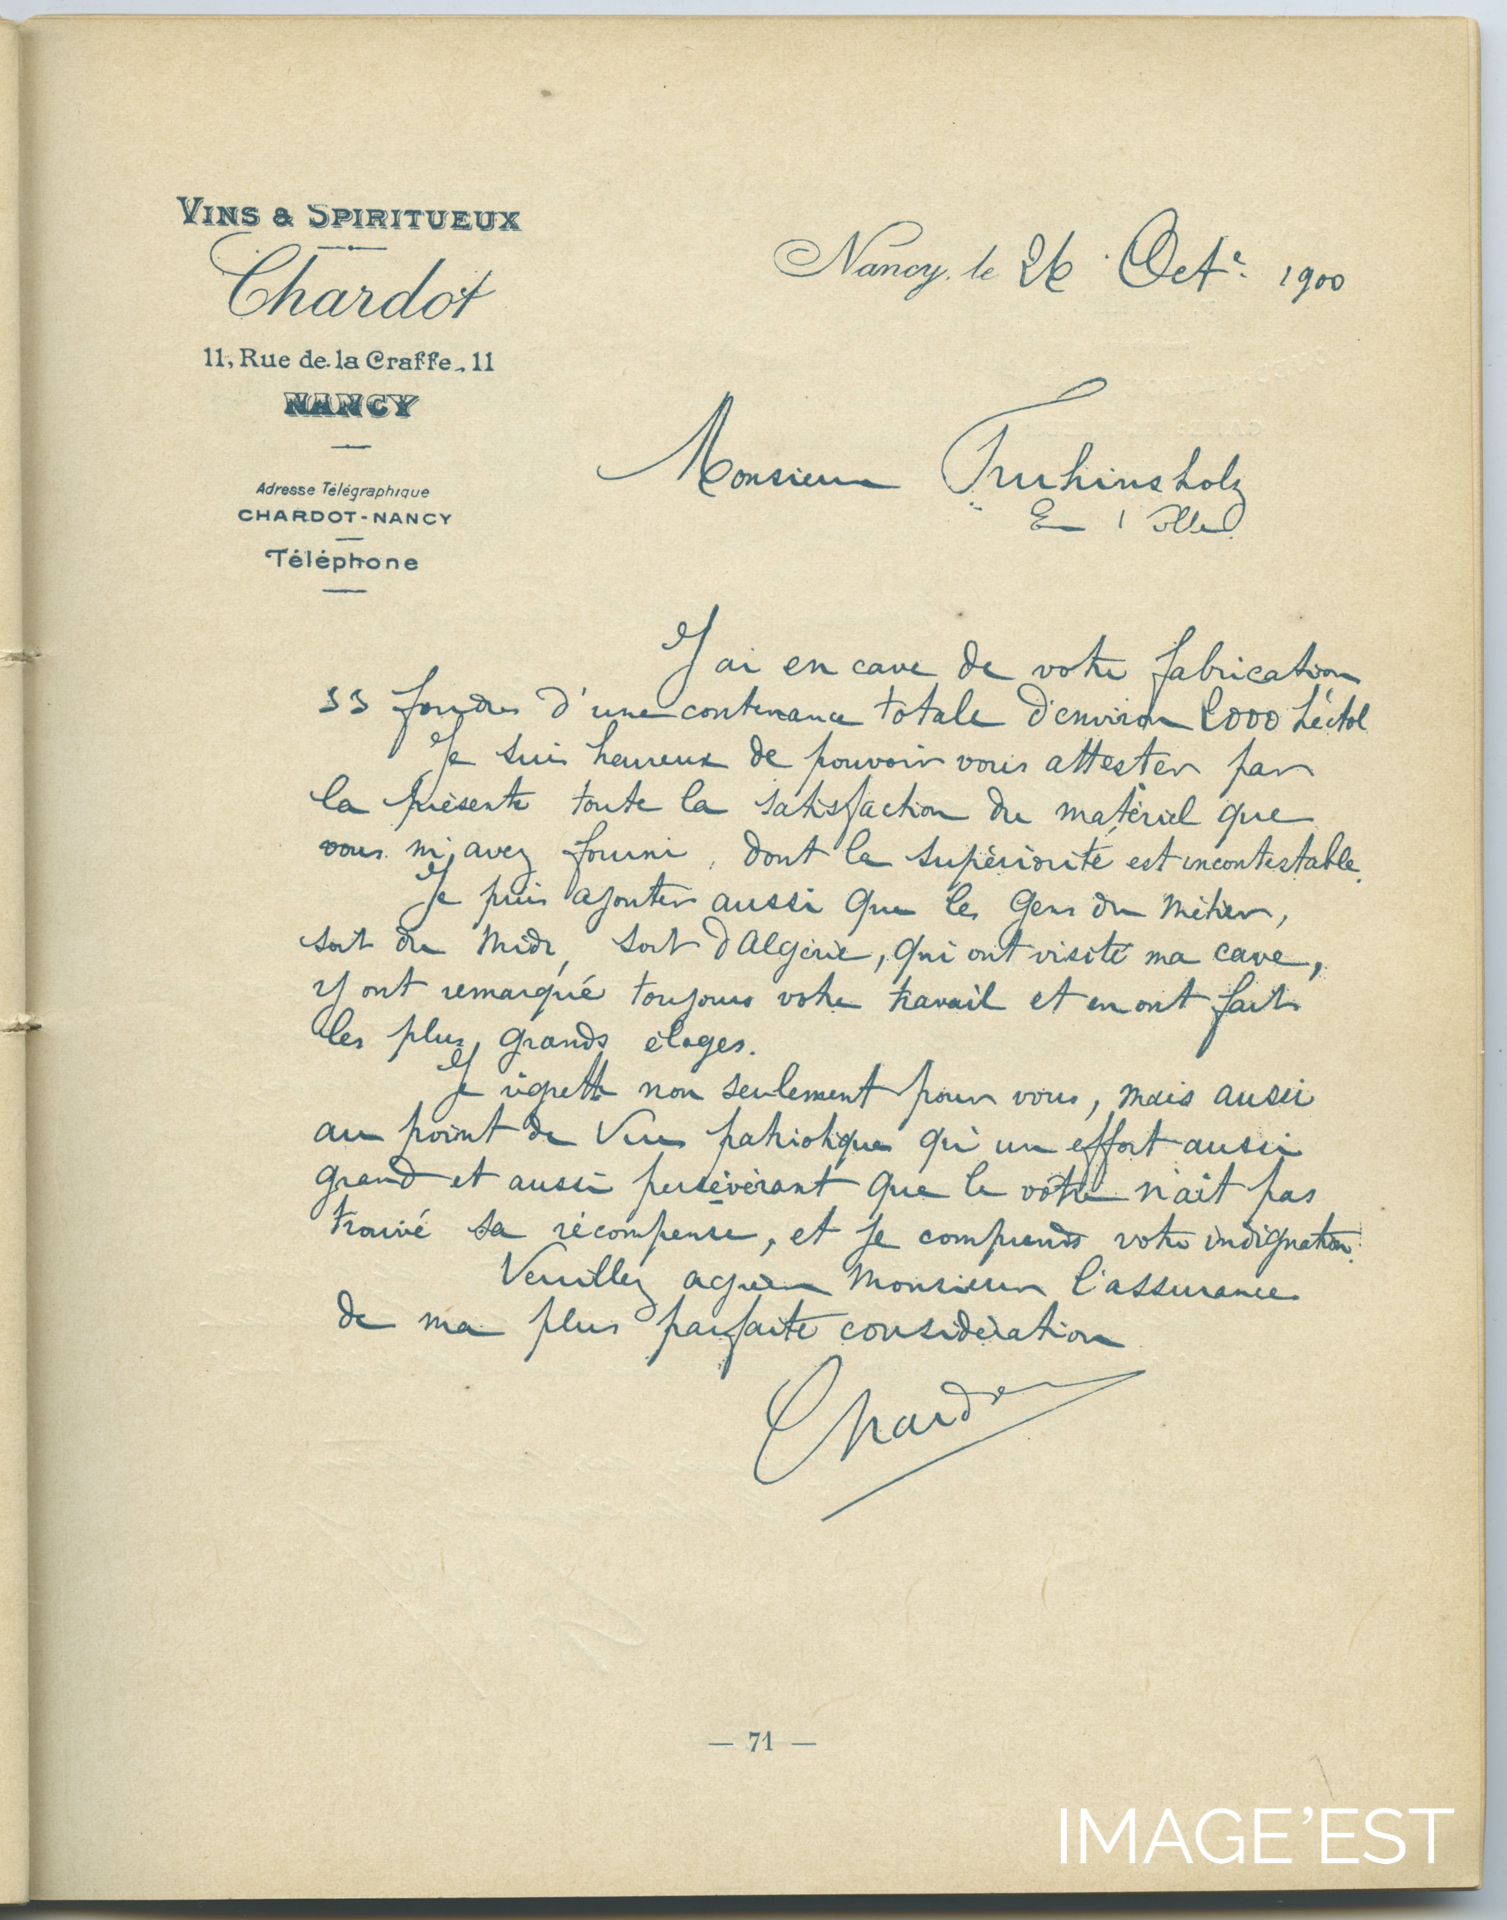 VINS & SPIRITUEUX
Chardot
11, Rue de la Craffe, 11
NANCY
Adresse Télégraphique
CHARDOT-NANCY
Téléphone
Nancy, le 26 Octe. 1900
Monsieur Fruhinsholz
En Ville
J'ai en cave de votre fabrication
33 foudres d'une contenance totale d'environ 2000 héctol
Je suis heureux de pouvoir vous attester par
la présente toute la satisfaction du matériel que
vous m'avez fourni, dont la supériorité est incontestable.
Je puis ajouter aussi que les gens du métier,
soit du Midi, soit d'Algérie, qui ont visité ma cave,
y ont remarqué toujours votre travail et en ont fait
les plus grands éloges.
Je regrette non seulement pour vous, mais aussi
au point de vue patriotique qu'un effort aussi
grand et aussi persévérant que le vôtre n'ait pas
trouvé sa récompense, et je comprends votre indignation.
Veuillez agréer Monsieur l'assurance
de ma plus parfaite considération
Chardot
— 71 —
IMAGE'EST